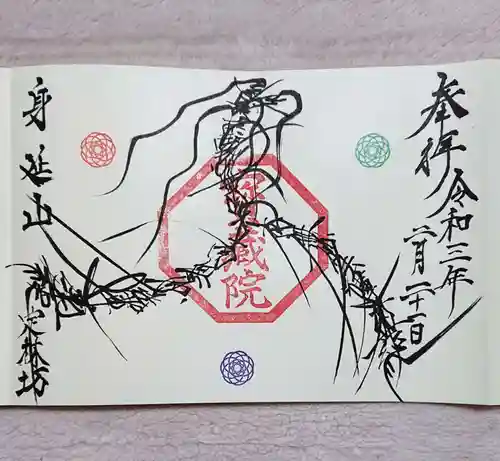 奉拝
令和三年
二月二十一日
蔵院
身延山
定林坊